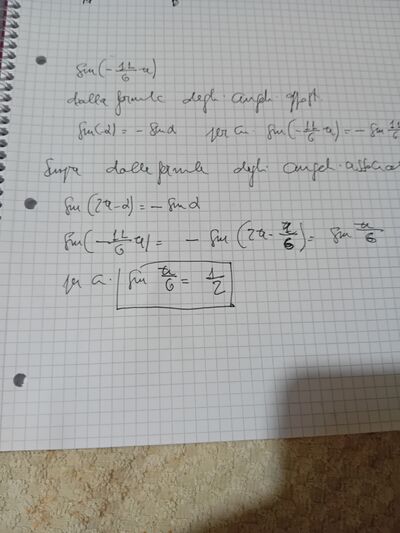 sin(-11/6 π)
dalla formula degli angoli opposti
sin(-α) = - sin α per cui sin(-11/6 π) = - sin 11
sempre dalle formule degli angoli associati
sin(2π-α) = - sin α
sin(-11/6 π) = - sin(2π - π/6) = sin π/6
per cui sin π/6 = 1/2